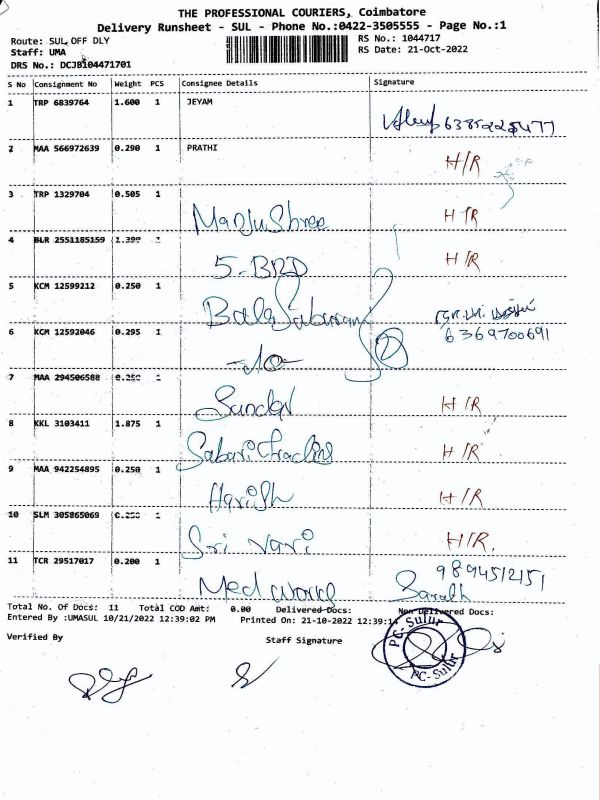 THE PROFESSIONAL COURIERS, Coimbatore
Delivery Runsheet - SUL - Phone No.:0422-3505555 - Page No.:1
Route: SUL OFF DLY RS No.: 1044717
Staff: UMA RS Date: 21-Oct-2022
DRS No.: DCJB104471701
S No Consignment No Weight PCS Consignee Details Signature
1 TRP 6839764 1.600 1 JEYAM
2 MAA 566972639 0.290 1 PRATHI H/R
3 TRP 1329704 0.505 1 ManjuShree H/R
4 BLR 2551185159 1.390 1 5-BRD H/R
5 KCM 12599212 0.250 1 Bala
6 KCM 12592046 0.295 1 -do- 6369700691
7 MAA 294506588 1 H/R
8 KKL 3103411 1.875 1 Sabari H/R
9 MAA 942254895 0.250 1 Harish H/R
10 SLM 305865069 1 Sri Vari H/R.
11 TCR 29517017 0.200 1 Med World 9894512151
Sarath
Total No. Of Docs: 11 Total COD Amt: 0.00 Delivered Docs: Non Delivered Docs:
Entered By :UMASUL 10/21/2022 12:39:02 PM Printed On: 21-10-2022 12:39:1
Verified By Staff Signature
PC-Sulur
PC-Sulur